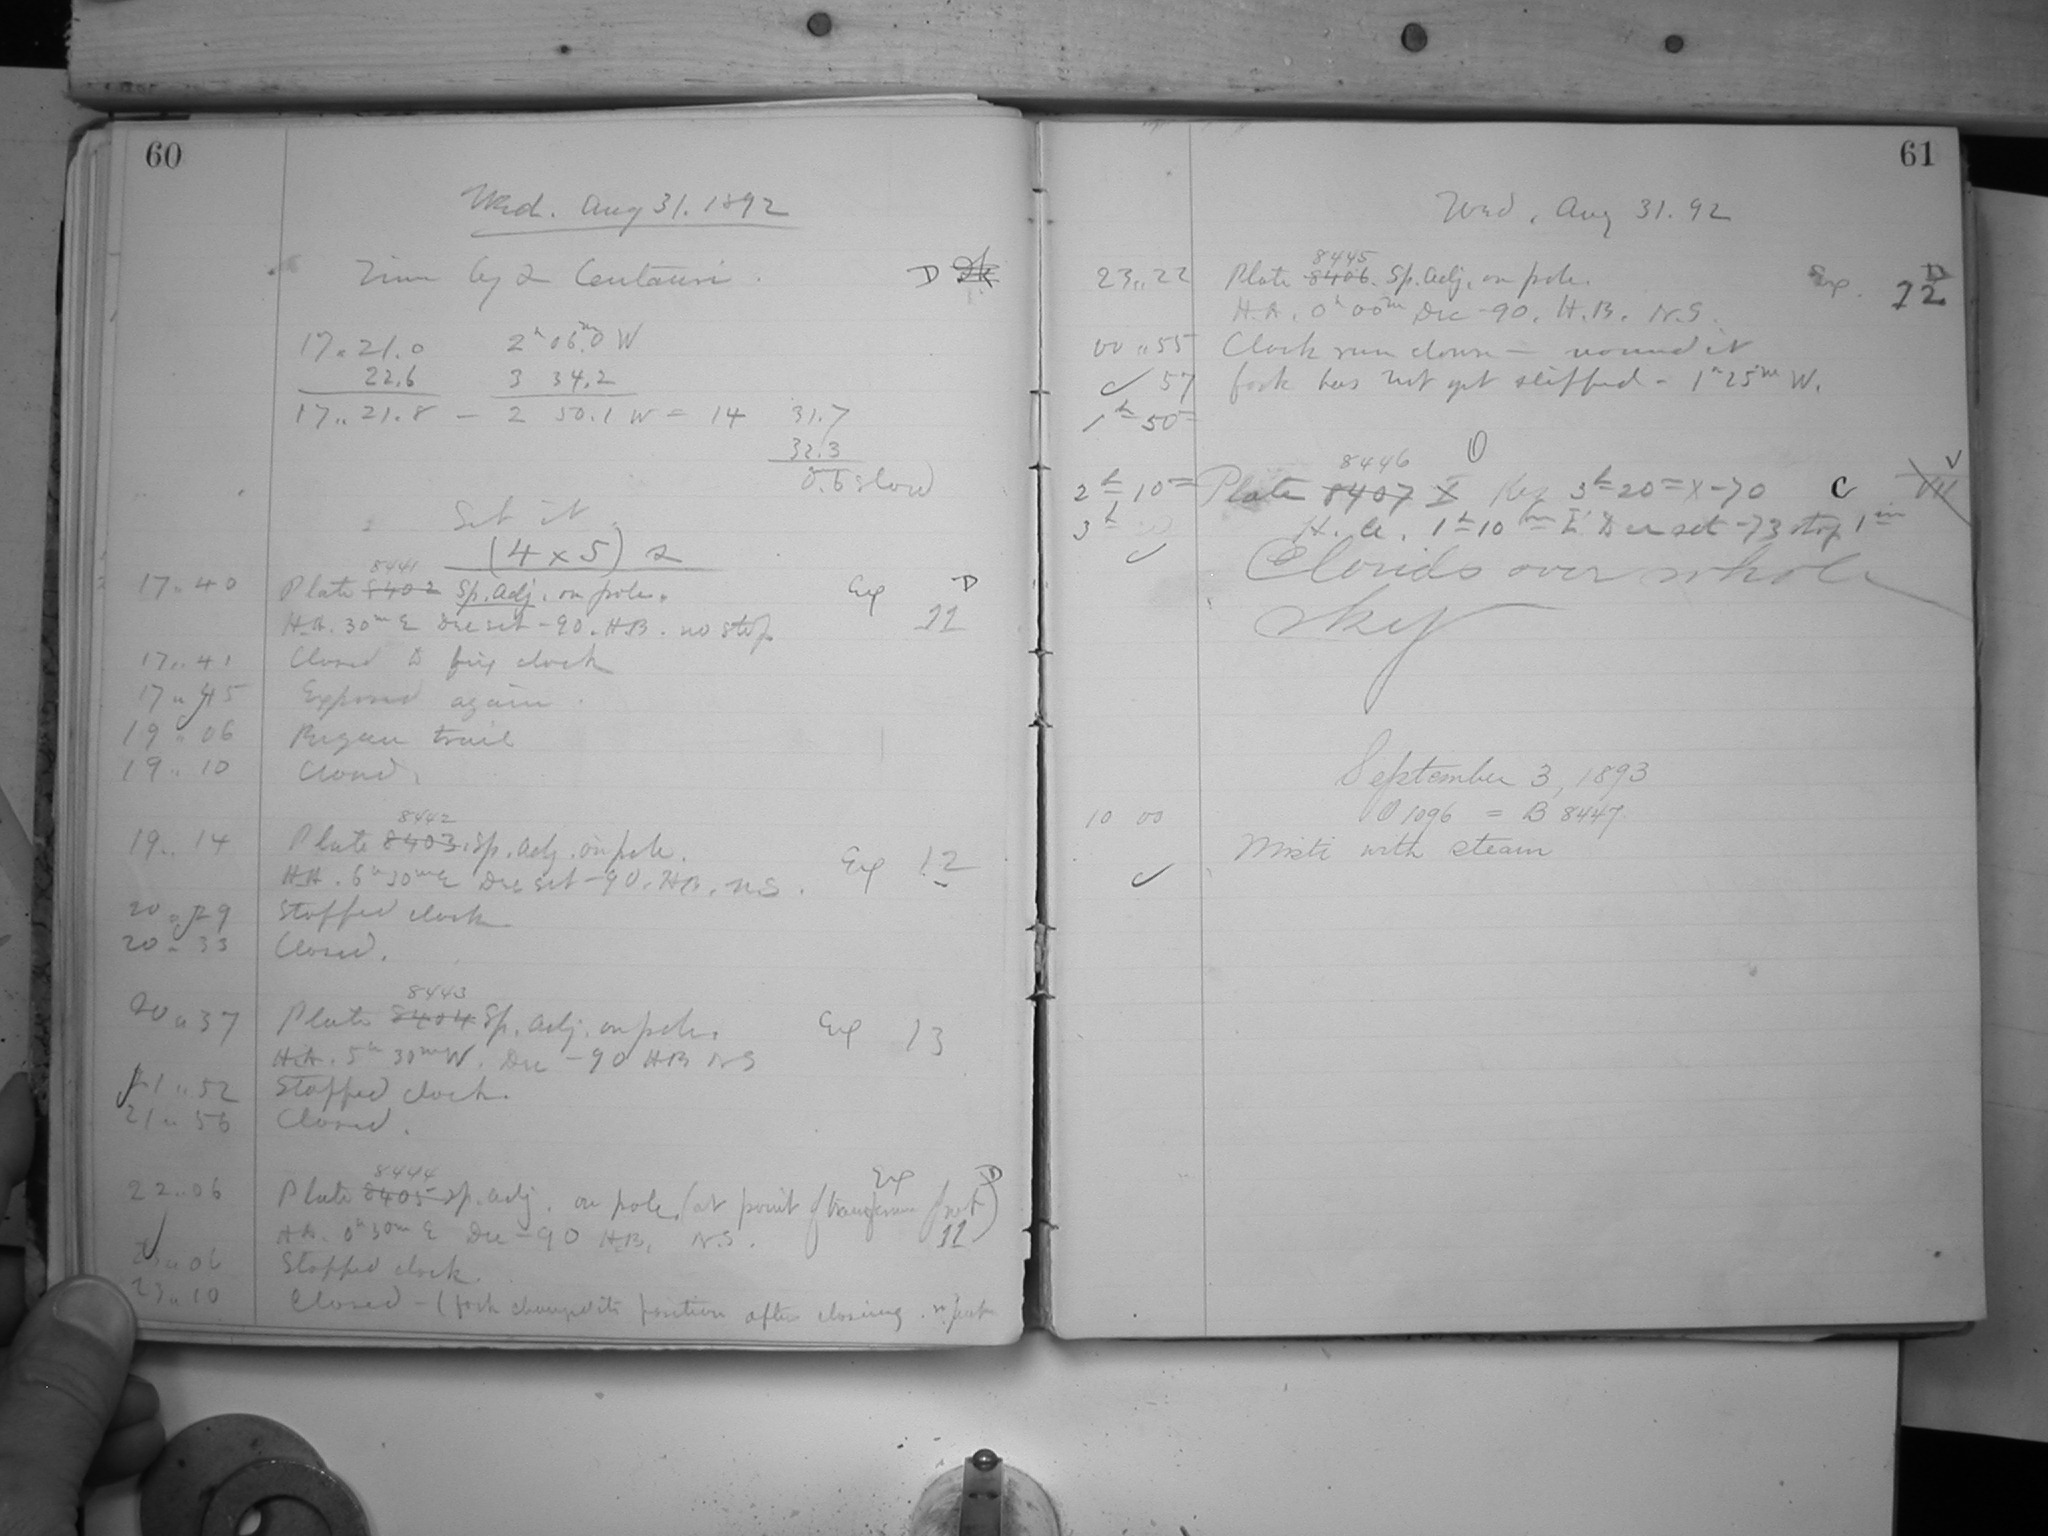 60
Wed. Aug 31. 1892
Time by α Centauri. D
17.. 21.0 2h 06.m0 W
22.6 3 34.2
17.. 21.8 - 2 50.1 W = 14 31.7
32.3
0.6 slow
Set it.
(4 x 5) 2
8441
17.. 40 Plate 8402 Sp. adj. on pole. Exp D
H.A. 30m E Dec set -90. H.B. no stop 11
17.. 41 Closed to fix clock
17.. 45 Exposed again.
19.. 06 Began trail
19.. 10 Closed.
8442
19.. 14 Plate 8403. Sp. adj. on pole. Exp 12
H.A. 6h 30m E Dec set -90. H.B. N.S.
20.. 29 Stopped clock
20.. 33 Closed.
8443
20.. 37 Plate 8404 Sp. adj. on pole. Exp 13
H.A. 5h 30m W. Dec -90 H.B. N.S
21.. 52 Stopped clock.
21.. 56 Closed.
8444 Exp D
22.. 06 Plate 8405 sp. adj. on pole. (at point of
H.A. 0h 30m E Dec -90 H.B. N.S. 11
23.. 06 Stopped clock.
23.. 10 Closed - (fork changed its position after closing.
61
Wed. Aug 31. 92
8445
23.. 22 Plate 8406. Sp. adj. on pole. Exp. D 12
H.A. 0h 00m Dec -90. H.B. N.S.
00.. 55 Clock run down - wound it
57 fork has not yet slipped - 1h 25m W.
1h 50m
8446
2h 10m Plate 8407 X Reg 3h 20m X -70 C V VII
3h H.A. 1h 10m E Dec set -73 stop 1in
Clouds over whole
sky
September 3, 1893
10 00 O 1096 = B 8447
Misti with steam